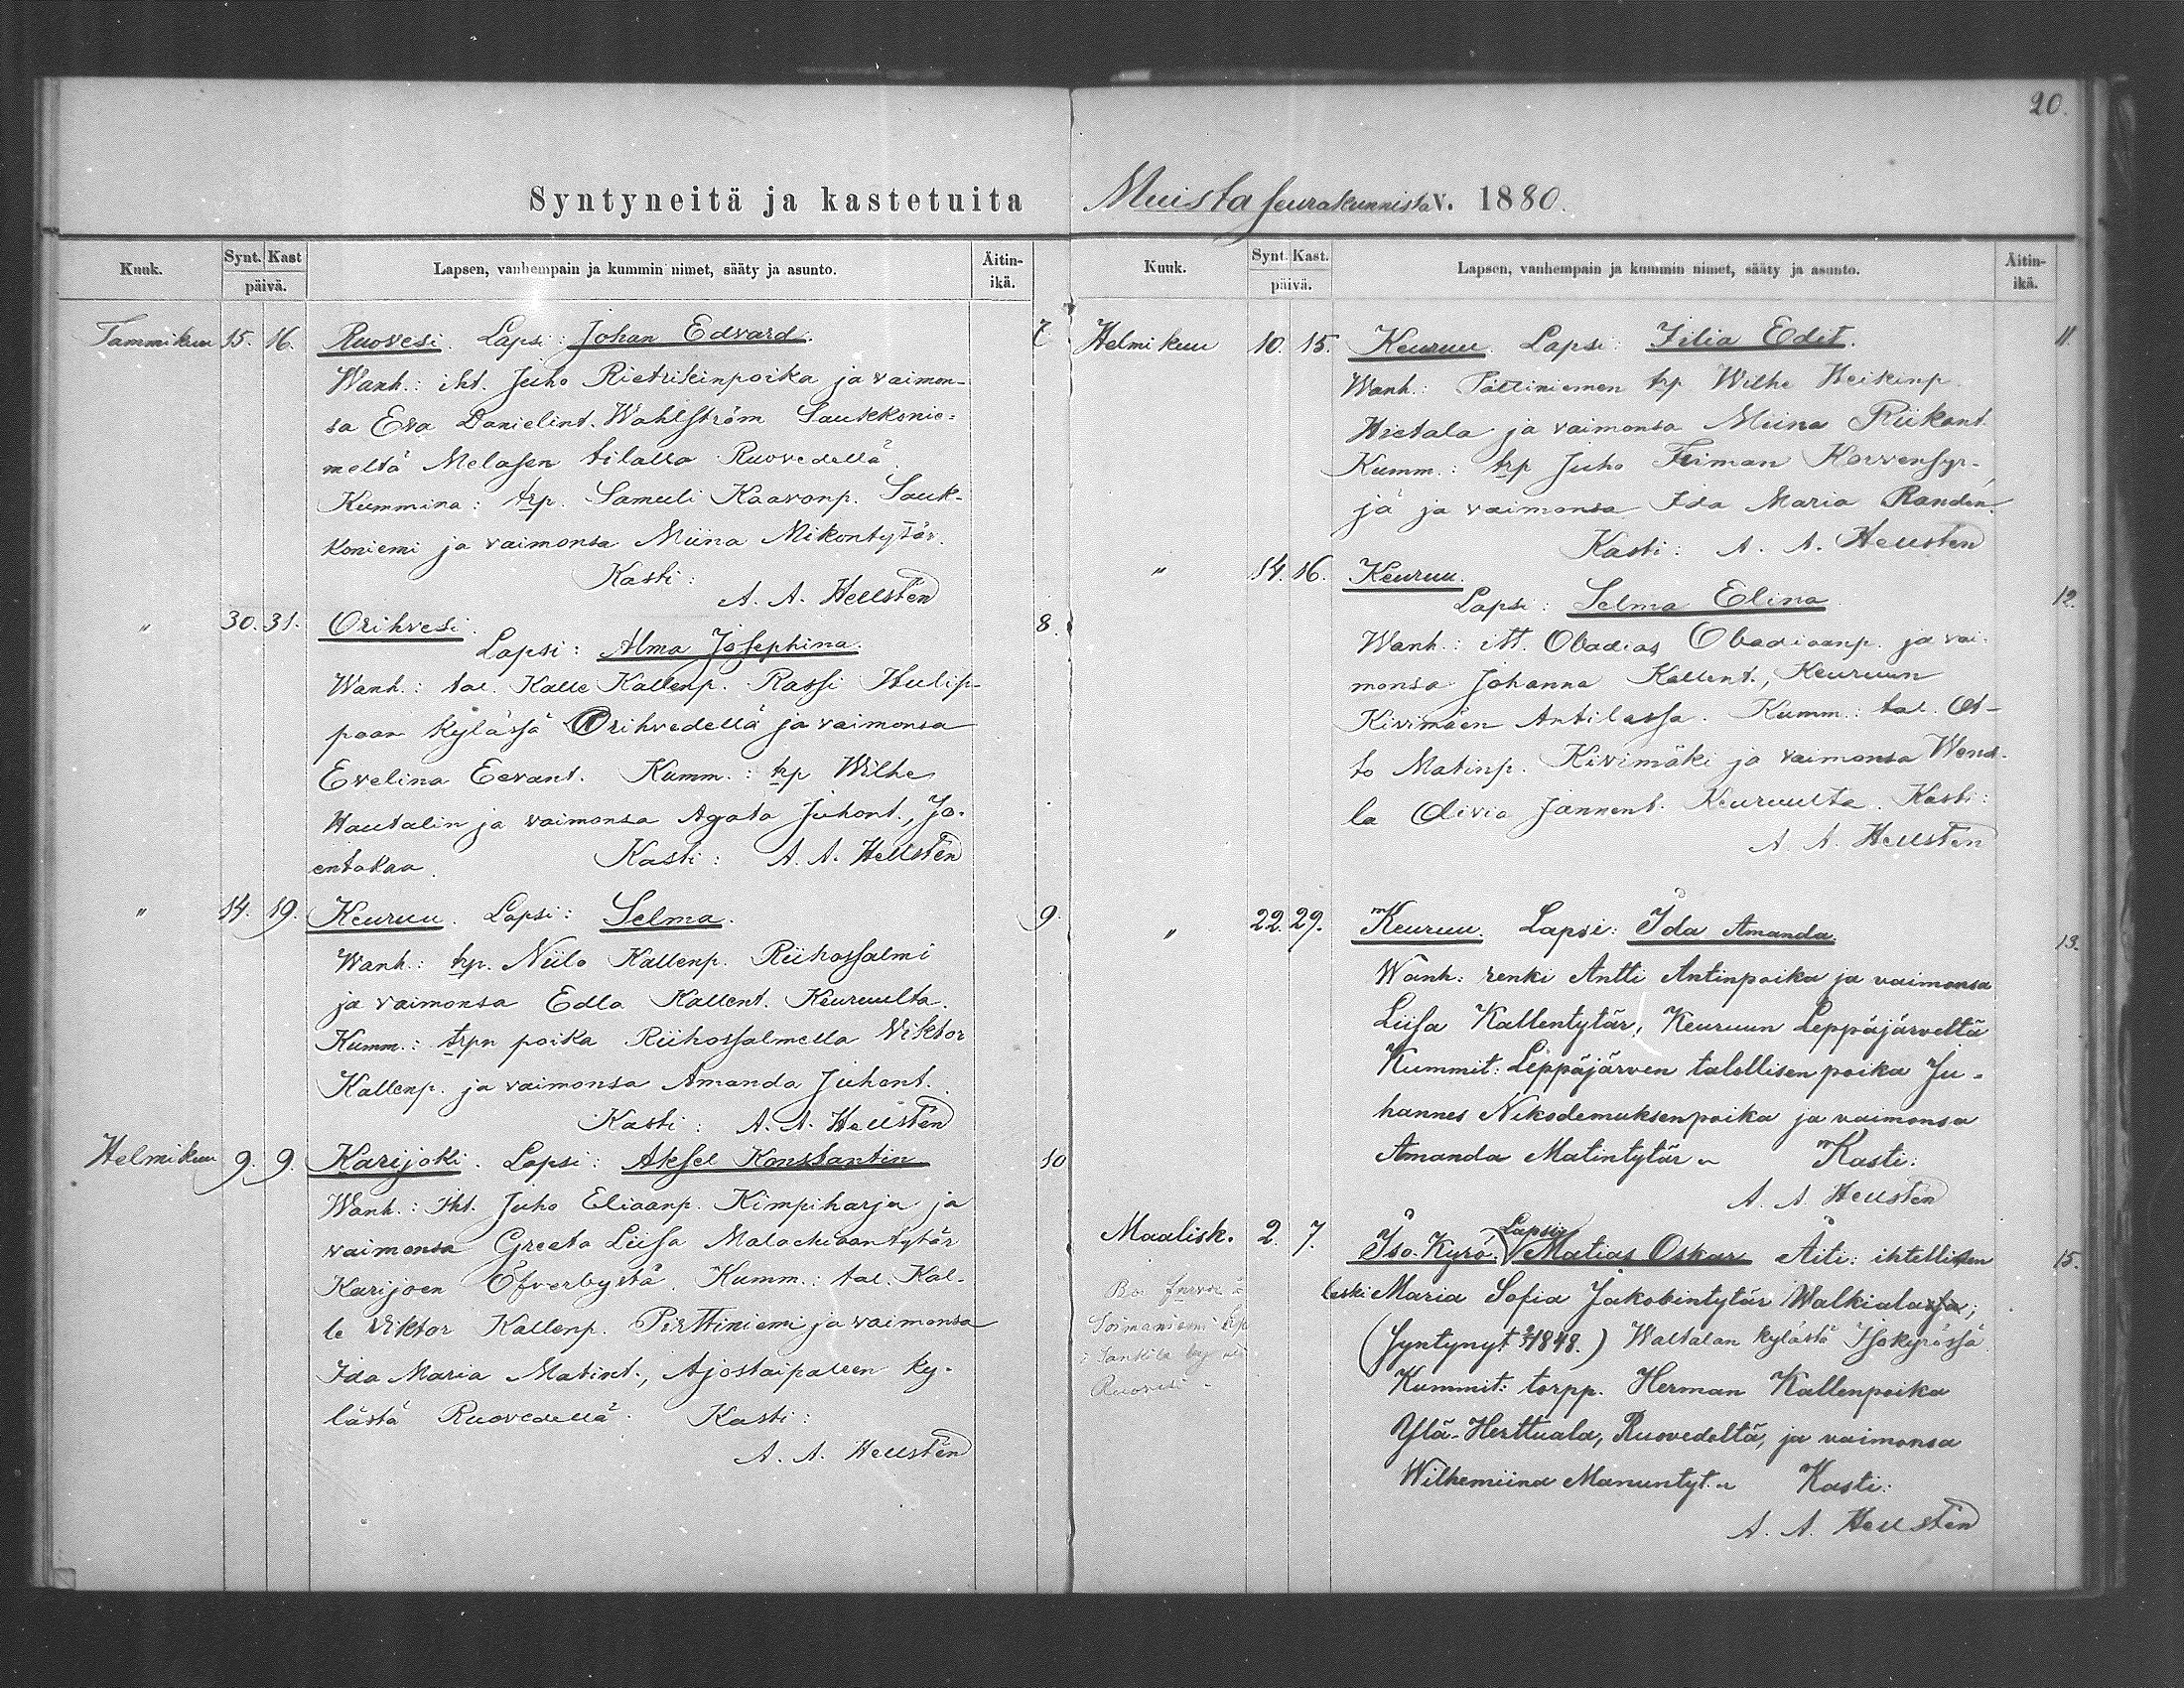 20.
Syntyneitä ja kastetuita
Kuuk. Synt. Kast päivä. Lapsen, vanhempain ja kummin nimet, sääty ja asunto. Äitin-ikä.
Tammikuu 15. 16. Ruovesi. Lapsi: Johan Edvard. 7
Wanh.: iht. Juho Rietrikinpoika ja vaimon-
sa Eva Danielint. Wahlström Saukkonie-
meltä Melasen tilalla Ruovedellä.
Kummina: trp. Samuli Kaavonp. Sauk-
koniemi ja vaimonsa Miina Mikontytär.
Kasti:
A. A. Hellstén
" 30. 31. Orihvesi. 8.
Lapsi: Alma Josephina.
Wanh.: tal. Kalle Kallenp. Rassi Hulip-
paan kylässä Orihvedellä ja vaimonsa
Evelina Eevant. Kumm.: trp Wilhe
Hautalin ja vaimonsa Agata Juhont., Jo-
entakaa. Kasti: A. A. Hellstén
" 14. 19. Keuruu. Lapsi: Selma. 9.
Wanh.: trp. Niilo Kallenp. Riihossalmi
ja vaimonsa Edla Kallent. Keuruulta.
Kumm.: trpn poika Riihossalmella Viktor
Kallenp. ja vaimonsa Amanda Juhont.
Kasti: A. A. Hellstén
Helmikuu 9. 9. Karijoki. Lapsi: Aksel Konstantin 10
Wanh.: iht. Juho Eliaanp. Kimpiharju ja
vaimonsa Greeta Liisa Malachiaantytär
Karijoen Öfverbystä. Kumm.: tal. Kal-
le Viktor Kallenp. Pirttiniemi ja vaimonsa
Ida Maria Matint., Ajostaipaleen ky-
lästä Ruovedellä. Kasti:
A. A. Hellstén
Muista seurakunnista v. 1880.
Kuuk. Synt. Kast. päivä. Lapsen, vanhempain ja kummin nimet, sääty ja asunto. Äitin-ikä.
Helmikuu 10. 15. Keuruu. Lapsi: Filia Edit. 11.
Wanh.: trp Wilhe Heikinp.
Hietala ja vaimonsa Miina Riikant.
Kumm.: trp Juho Friman Korvensyr-
jä ja vaimonsa Ida Maria Randén.
Kasti: A. A. Hellsten
" 14. 16. Keuruu.
Lapsi: Selma Elina. 12.
Wanh.: itl. Obadias Obadiaanp. ja vai-
monsa Johanna Kallent., Keuruun
Kivimäen Antilassa. Kumm.: tal. Ot-
to Matinp. Kivimäki ja vaimonsa Wend-
la Olivia Jannent. Keuruulta. Kasti:
A. A. Hellsten
" 22. 29. Keuruu. Lapsi: Ida Amanda. 13.
Wanh: renki Antti Antinpoika ja vaimonsa
Liisa Kallentytär, Keuruun Leppäjärveltä
Kummit: Leppäjärven talollisen poika Ju-
hannes Nikodemuksenpoika ja vaimonsa
Amanda Matintytär Kasti:
A. A. Hellstén
Maalisk. 2. 7. Iso-Kyrö. Lapsi: Matias Oskar Äiti: ihtellisen 15.
leski Maria Sofia Jakobintytär Walkiala;
(Syntynyt 1848.) Waltalan kylästä Isokyrössä.
Kummit: torpp. Herman Kallenpoika
Ylä-Herttuala, Ruovedeltä, ja vaimonsa
Wilhemiina Manuntyt. Kasti:
A. A. Hellstén
Soimaniemi
Ruovesi